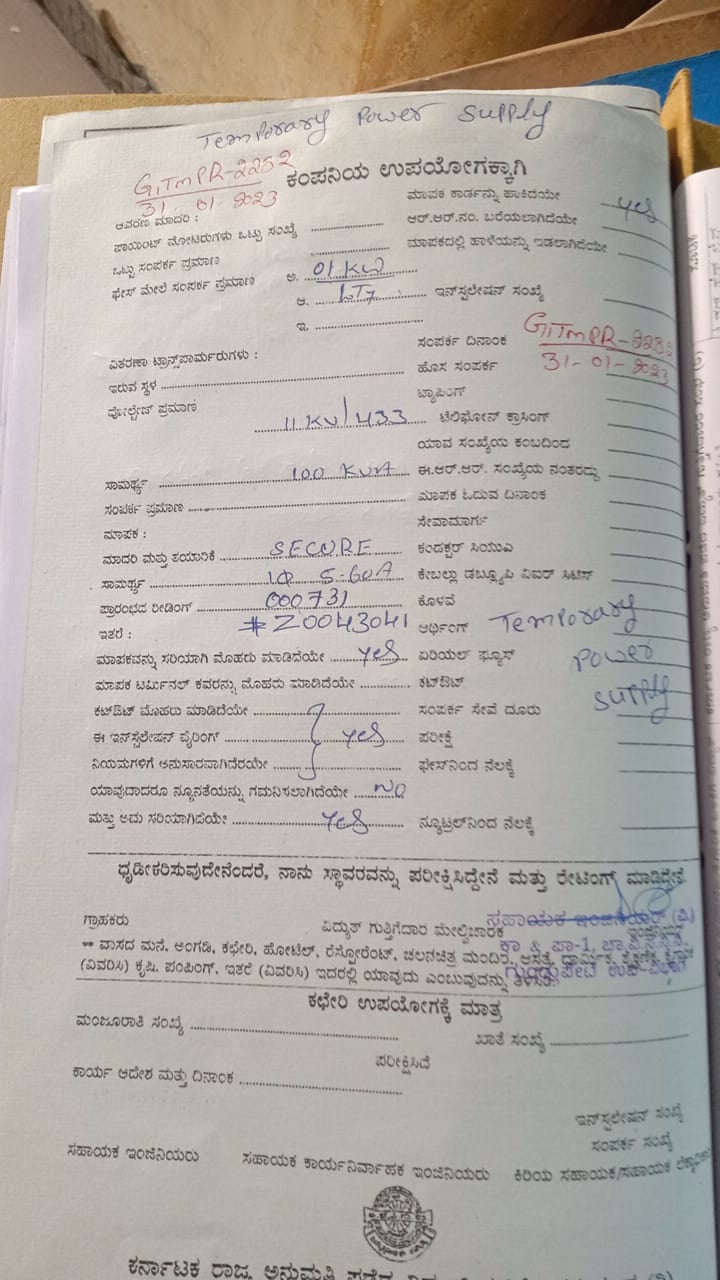 Temporary Power Supply
GTMPR-2282
31-01-2023
ಕಂಪನಿಯ ಉಪಯೋಗಕ್ಕಾಗಿ
ಆವರಣ ಮಾದರಿ :
ಪಾಯಿಂಟ್ ಮೋಟರುಗಳು ಒಟ್ಟು ಸಂಖ್ಯೆ
ಒಟ್ಟು ಸಂಪರ್ಕ ಪ್ರಮಾಣ
ಫೇಸ್ ಮೇಲೆ ಸಂಪರ್ಕ ಪ್ರಮಾಣ ಅ. 01 KW
ಆ. LT7
ಇ.
ಮಾಪಕ ಕಾರ್ಡನ್ನು ಹಾಕಿದೆಯೇ yes
ಆರ್.ಆರ್.ನಂ. ಬರೆಯಲಾಗಿದೆಯೇ
ಮಾಪಕದಲ್ಲಿ ಹಾಳೆಯನ್ನು ಇಡಲಾಗಿದೆಯೇ
ಇನ್‌ಸ್ಟಲೇಷನ್ ಸಂಖ್ಯೆ
ವಿತರಣಾ ಟ್ರಾನ್ಸ್‌ಪಾರ್ಮರುಗಳು :
ಇರುವ ಸ್ಥಳ
ವೋಲ್ಟೇಜ್ ಪ್ರಮಾಣ
11 KV/433
ಸಾಮರ್ಥ್ಯ 100 KVA
ಸಂಪರ್ಕ ಪ್ರಮಾಣ
ಮಾಪಕ :
ಮಾದರಿ ಮತ್ತು ತಯಾರಿಕೆ SECURE
ಸಾಮರ್ಥ್ಯ 1Φ 5-60A
ಪ್ರಾರಂಭದ ರೀಡಿಂಗ್ 000731
ಇತರೆ : #Z0043041
ಮಾಪಕವನ್ನು ಸರಿಯಾಗಿ ಮೊಹರು ಮಾಡಿದೆಯೇ yes
ಮಾಪಕ ಟರ್ಮಿನಲ್ ಕವರನ್ನು ಮೊಹರು ಮಾಡಿದೆಯೇ
ಕಟ್‌ಔಟ್ ಮೊಹರು ಮಾಡಿದೆಯೇ
ಈ ಇನ್‌ಸ್ಟಲೇಷನ್ ವೈರಿಂಗ್ yes
ನಿಯಮಗಳಿಗೆ ಅನುಸಾರವಾಗಿದೆರಯೇ
ಯಾವುದಾದರೂ ನ್ಯೂನತೆಯನ್ನು ಗಮನಿಸಲಾಗಿದೆಯೇ NO
ಮತ್ತು ಅದು ಸರಿಯಾಗಿದೆಯೇ yes
ಸಂಪರ್ಕ ದಿನಾಂಕ GTMPR-2282
ಹೊಸ ಸಂಪರ್ಕ 31-01-2023
ಟ್ಯಾಪಿಂಗ್
ಟೆಲಿಫೋನ್ ಕ್ರಾಸಿಂಗ್
ಯಾವ ಸಂಖ್ಯೆಯ ಕಂಬದಿಂದ
ಈ.ಆರ್.ಆರ್. ಸಂಖ್ಯೆಯ ನಂತರದ್ದು
ಮಾಪಕ ಓದುವ ದಿನಾಂಕ
ಸೇವಾಮಾರ್ಗ
ಕಂಡಕ್ಟರ್ ಸಿಯುಎ
ಕೇಬಲ್ಲು ಡಬ್ಲ್ಯೂಪಿ ವಿಐರ್ ಸಿಟಿಸ್
ಕೊಳವೆ
ಅರ್ಥಿಂಗ್ Temporary
ಏರಿಯಲ್ ಫ್ಯೂಸ್ Power
ಕಟ್‌ಔಟ್ supply
ಸಂಪರ್ಕ ಸೇವೆ ದೂರು
ಪರೀಕ್ಷೆ
ಫೇಸ್‌ನಿಂದ ನೆಲಕ್ಕೆ
ನ್ಯೂಟ್ರಲ್‌ನಿಂದ ನೆಲಕ್ಕೆ
ಧೃಡೀಕರಿಸುವುದೇನೆಂದರೆ, ನಾನು ಸ್ಥಾವರವನ್ನು ಪರೀಕ್ಷಿಸಿದ್ದೇನೆ ಮತ್ತು ರೇಟಿಂಗ್ ಮಾಡಿದ್ದೇನೆ.
ಗ್ರಾಹಕರು ವಿದ್ಯುತ್ ಗುತ್ತಿಗೆದಾರ ಮೇಲ್ವಿಚಾರಕ
ಸಹಾಯಕ ಇಂಜಿನಿಯರ್ (ವಿ)
** ವಾಸದ ಮನೆ, ಅಂಗಡಿ, ಕಛೇರಿ, ಹೋಟೆಲ್, ರೆಸ್ಟೋರೆಂಟ್, ಚಲನಚಿತ್ರ ಮಂದಿರ, ಆಸ್ಪತ್ರೆ, ಧಾರ್ಮಿಕ, ಶೈಕ್ಷಣಿಕ,
(ವಿವರಿಸಿ) ಕೃಷಿ, ಪಂಪಿಂಗ್, ಇತರೆ (ವಿವರಿಸಿ) ಇದರಲ್ಲಿ ಯಾವುದು ಎಂಬುವುದನ್ನು ತಿಳಿಸಿರಿ.
ಕಛೇರಿ ಉಪಯೋಗಕ್ಕೆ ಮಾತ್ರ
ಮಂಜೂರಾತಿ ಸಂಖ್ಯೆ ಖಾತೆ ಸಂಖ್ಯೆ
ಪರೀಕ್ಷಿಸಿದೆ
ಕಾರ್ಯ ಆದೇಶ ಮತ್ತು ದಿನಾಂಕ
ಇನ್‌ಸ್ಟಲೇಷನ್ ಸಂಖ್ಯೆ
ಸಂಪರ್ಕ ಸಂಖ್ಯೆ
ಸಹಾಯಕ ಇಂಜಿನಿಯರು ಸಹಾಯಕ ಕಾರ್ಯನಿರ್ವಾಹಕ ಇಂಜಿನಿಯರು ಕಿರಿಯ ಸಹಾಯಕ/ಸಹಾಯಕ
ಕರ್ನಾಟಕ ರಾಜ್ಯ ಅನುಮತಿ ಪಡೆದ